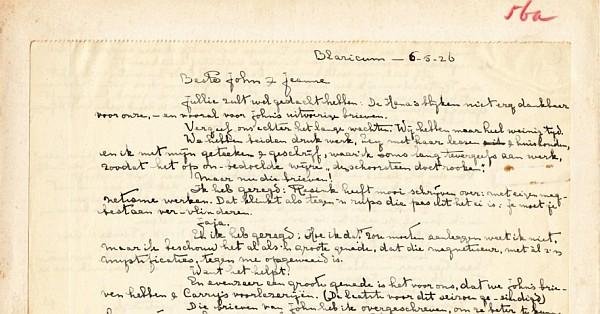 56a
Blaricum — 6-5-26
Beste John & Jeanne
Jullie zult wel gedacht hebben: De Hana's blijken niet erg dankbaar
voor onze, – en vooral voor John's uitvoerige brieven.
Vergeef ons echter het lange wachten. Wij hebben maar heel weinig tijd.
We hebben beiden druk werk, zij met haar lessen & huishouden,
en ik met mijn geteeken & geschrijf, waar ik soms lang tevergeefs aan werk,
zoodat het op on-bedoelde wijze „de schoorsteen doet rooken".
Maar nu die brieven!
Ik heb gezegd: Resink heeft mooi schrijven over: met eigen mag-
netisme werken. Dat klinkt als tegen 'n rups die pas uit het ei is: je moet je
bestaan ver-vlinderen.
Jaja.
En ik heb gezegd: Hoe ik dat zou moeten aanleggen weet ik niet,
maar ik beschouw het al als 'n groote genade, dat die magnetiseur, met al z'n
mystificaties, tegen me opgewekt is.
Want het helpt!
En evenzeer een groote genade is het voor ons, dat we John's brie-
ven hebben & Carry's voorlezerijen. (De laatste voor dit seizoen ge-eindigd)
Die brieven van John heb ik overgeschreven, om ze beter te